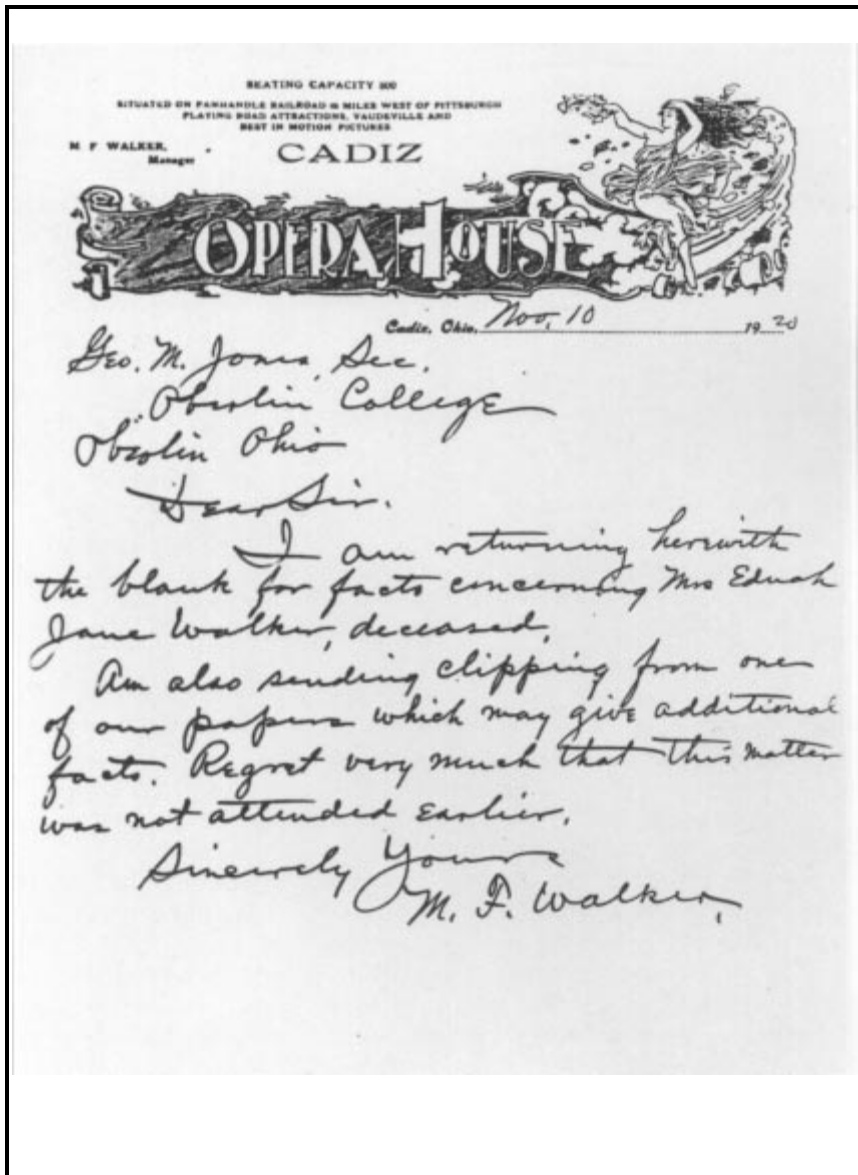 SEATING CAPACITY 800
SITUATED ON PANHANDLE RAILROAD MILES WEST OF PITTSBURGH
PLAYING ROAD ATTRACTIONS, VAUDEVILLE AND
BEST IN MOTION PICTURES
M F WALKER,
Manager
CADIZ
OPERA HOUSE
Cadiz, Ohio, Nov, 10 1920
Geo. M. Jones, Sec.
Oberlin College
Oberlin Ohio
Dear Sir.
I am returning herewith
the blank for facts concerning Mrs Ednah
Jane Walker, deceased,
Am also sending clipping from one
of our papers which may give additional
facts. Regret very much that this matter
was not attended earlier.
Sincerely Yours
M. F. Walker,